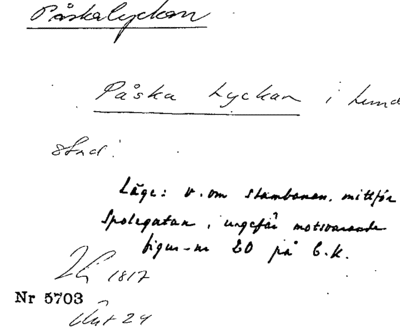 Påskalyckan
Påska Lyckan i Lund
stad.
Läge: v. om stambanan, mittför
Spolegatan, ungefär motsvarande
figur-nr 20 på E.K.
1817
Nr 5703
24